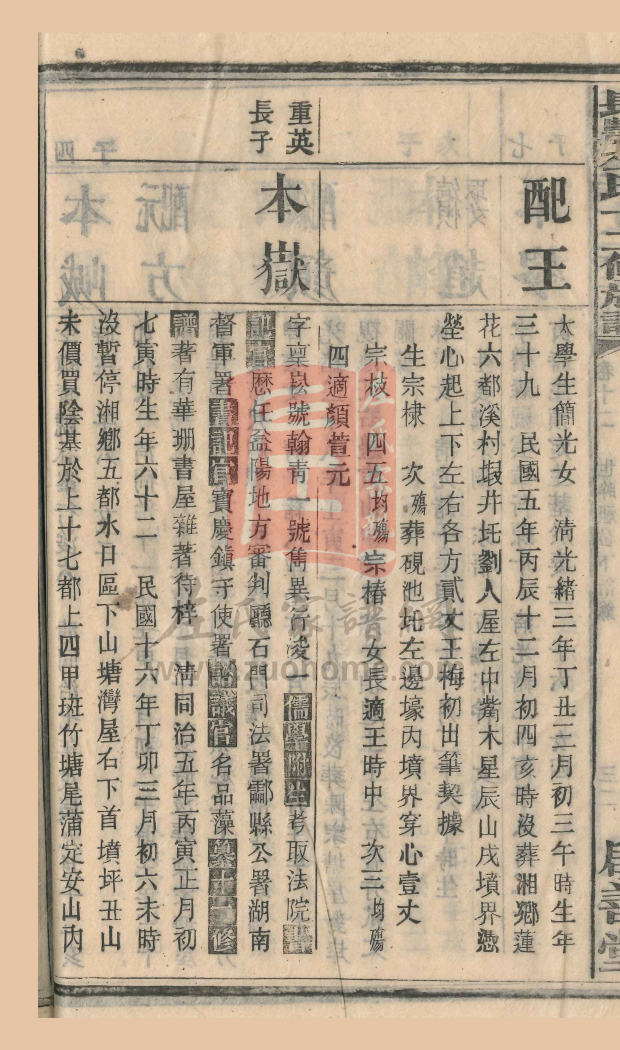 配王
太學生簡光女 清光緒三年丁丑二月初三午時生年
三十九 民國五年丙辰十二月初四亥時沒葬湘鄉蓮
花六都溪村塅井坵劉人屋左中嘴木星辰山戌墳界憑
塋心起上下左右各方貳丈王梅初出筆契據
生宗棣 次殤葬硯池坨左邊壕內墳界穿心壹丈
宗枝 四五均殤宗椿 女長適王時中 次三均殤
四適顏昔元
重英
長子
本嶽
字稟崧號翰青一號雋異行淩一儒學附生考取法院
記官歷任益陽地方審判廳石門司法署酃縣公署湖南
督軍署書記官寶慶鎮守使署諮議官名品藻纂十二修
譜著有華珊書屋雜著待梓 清同治五年丙寅正月初
七寅時生年六十二 民國十六年丁卯三月初六未時
沒暫停湘鄉五都水口區下山塘灣屋右下首墳坪丑山
未價買陰基於上十七都上四甲斑竹塘尾蒲定安山內
左氏家譜網
www.zuohome.com